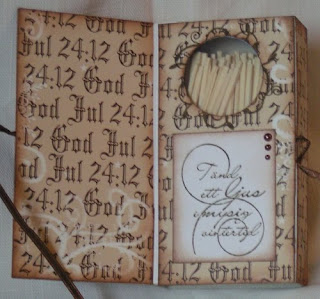 God
Jul 24:12
24:12 God
God Jul
Jul 24:12
24:12 God
God Jul
Jul 24:12
24:12 God
God Jul
Jul 24:12
Tänd
ett ljus
i mysig
vintertid